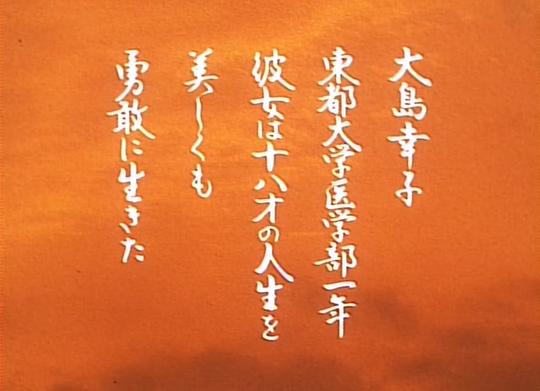 大島幸子
東都大学医学部一年
彼女は十八才の人生を
美しくも
勇敢に生きた